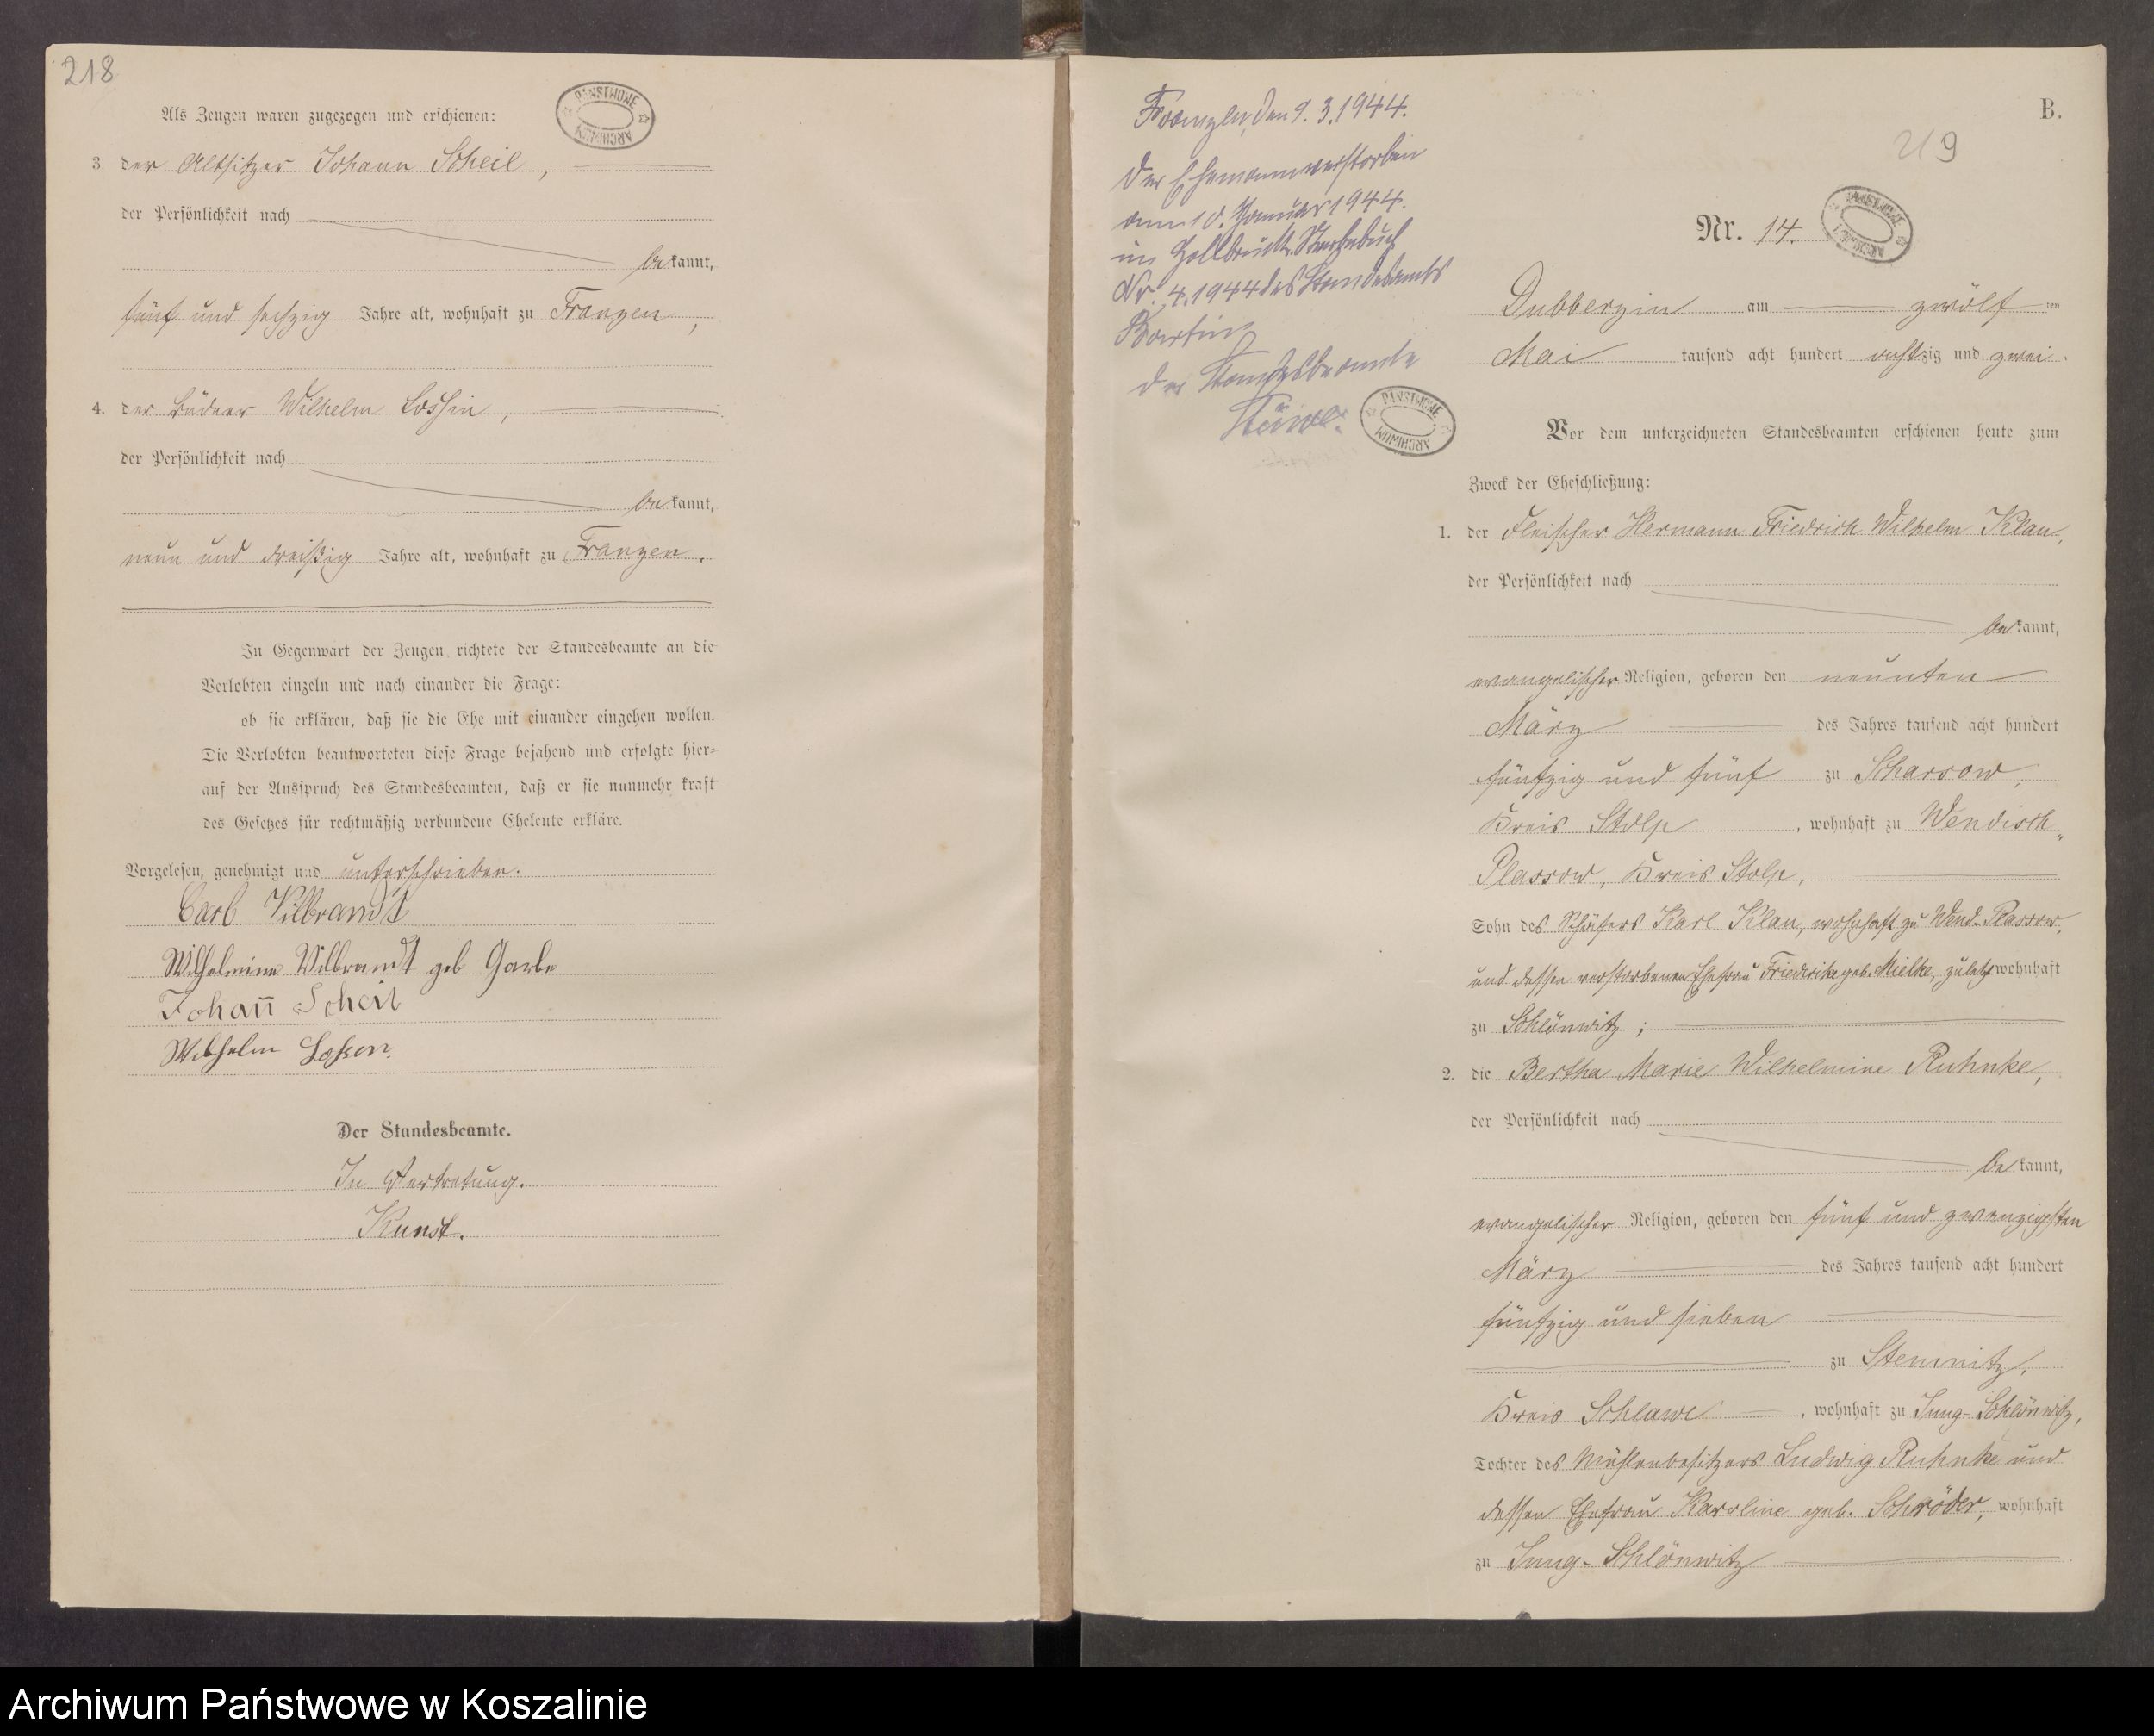 218
Als Zeugen waren zugezogen und erschienen:
PAŃSTWOWE ARCHIWUM
3. der Altsitzer Johann Scheil,
der Persönlichkeit nach
bekannt,
fünf und sechzig Jahre alt, wohnhaft zu Franzen,
4. der Büdner Wilhelm Lossin,
der Persönlichkeit nach
bekannt,
neun und dreißig Jahre alt, wohnhaft zu Franzen.
In Gegenwart der Zeugen richtete der Standesbeamte an die
Verlobten einzeln und nach einander die Frage:
ob sie erklären, daß sie die Ehe mit einander eingehen wollen.
Die Verlobten beantworteten diese Frage bejahend und erfolgte hier-
auf der Ausspruch des Standesbeamten, daß er sie nunmehr kraft
des Gesetzes für rechtmäßig verbundene Eheleute erkläre.
Vorgelesen, genehmigt und unterschrieben.
Carl Vilbrandt
Wilhelmine Vilbrandt geb Garbe
Johañ Scheil
Wilhelm Lossin.
Der Standesbeamte.
In Vertretung.
Kunst.
Franzen, den 9. 3. 1944.
Der Ehemann verstorben
am 10. Januar 1944.
in Zollbrück. Sterbebuch
Nr. 4. 1944 des Standesamts
Bartin
Der Standesbeamte
PAŃSTWOWE ARCHIWUM
B.
219
Nr. 14.
PAŃSTWOWE ARCHIWUM
Dubberzin am zwölften
Mai tausend acht hundert achtzig und zwei.
Vor dem unterzeichneten Standesbeamten erschienen heute zum
Zweck der Eheschließung:
1. der Fleischer Hermann Friedrich Wilhelm Klan,
der Persönlichkeit nach
bekannt,
evangelischer Religion, geboren den neunten
März des Jahres tausend acht hundert
fünfzig und fünf zu Scharsow,
Kreis Stolp, wohnhaft zu Wendisch-
Plassow, Kreis Stolp,
Sohn des Schäfers Karl Klan, wohnhaft zu Wend. Plassow,
und dessen verstorbenen Ehefrau Friederike geb. Mielke, zuletzt wohnhaft
zu Schlönwitz;
2. die Bertha Marie Wilhelmine Ruhnke,
der Persönlichkeit nach
bekannt,
evangelischer Religion, geboren den fünf und zwanzigsten
März des Jahres tausend acht hundert
fünfzig und sieben
zu Stemnitz,
Kreis Schlawe, wohnhaft zu Jung-Schlönwitz,
Tochter des Mühlenbesitzers Ludwig Ruhnke und
dessen Ehefrau Karoline geb. Schröder, wohnhaft
zu Jung-Schlönwitz
Archiwum Państwowe w Koszalinie